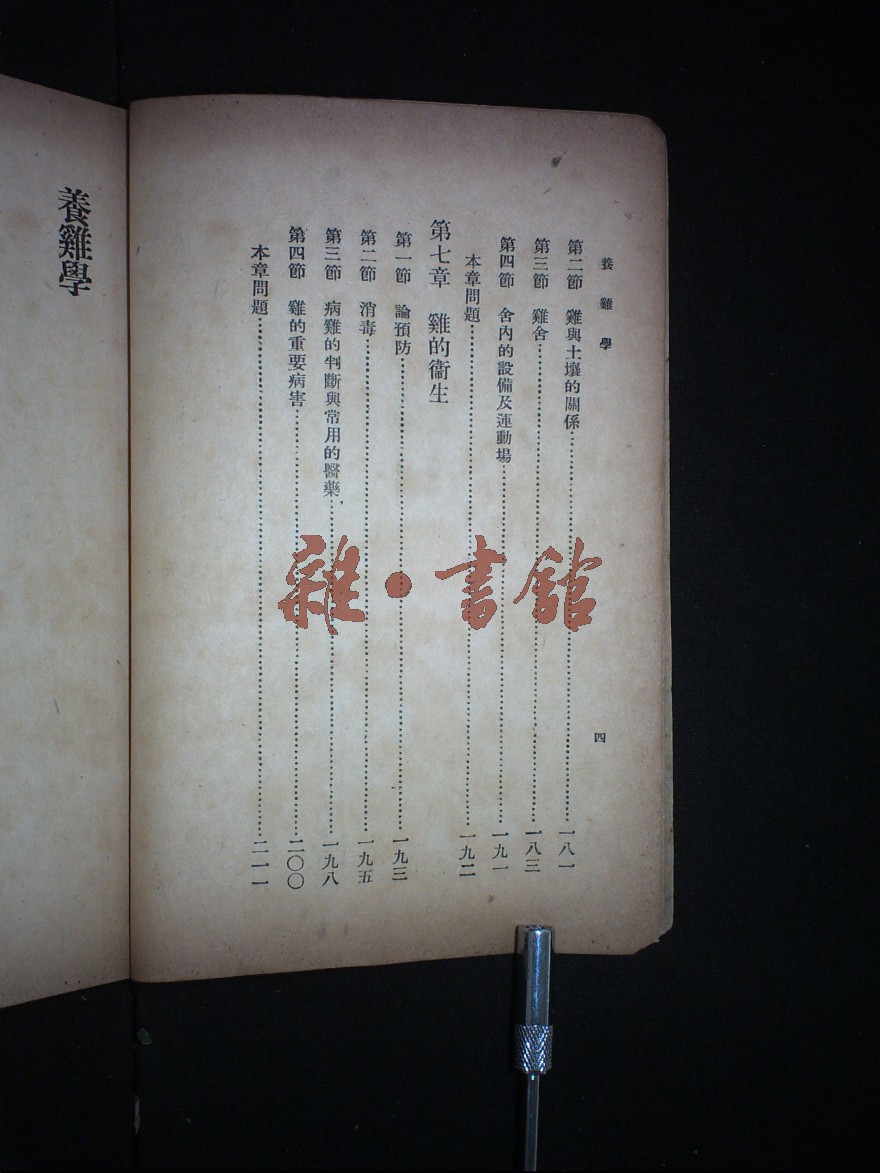 養雞學
四
第二節 雞與土壤的關係……一八一
第三節 雞舍……一八三
第四節 舍內的設備及運動場……一九一
本章問題……一九二
第七章 雞的衞生
第一節 論預防……一九三
第二節 消毒……一九五
第三節 病雞的判斷與常用的醫藥……一九八
第四節 雞的重要病害……二〇〇
本章問題……二一一
養雞學
雜·書館